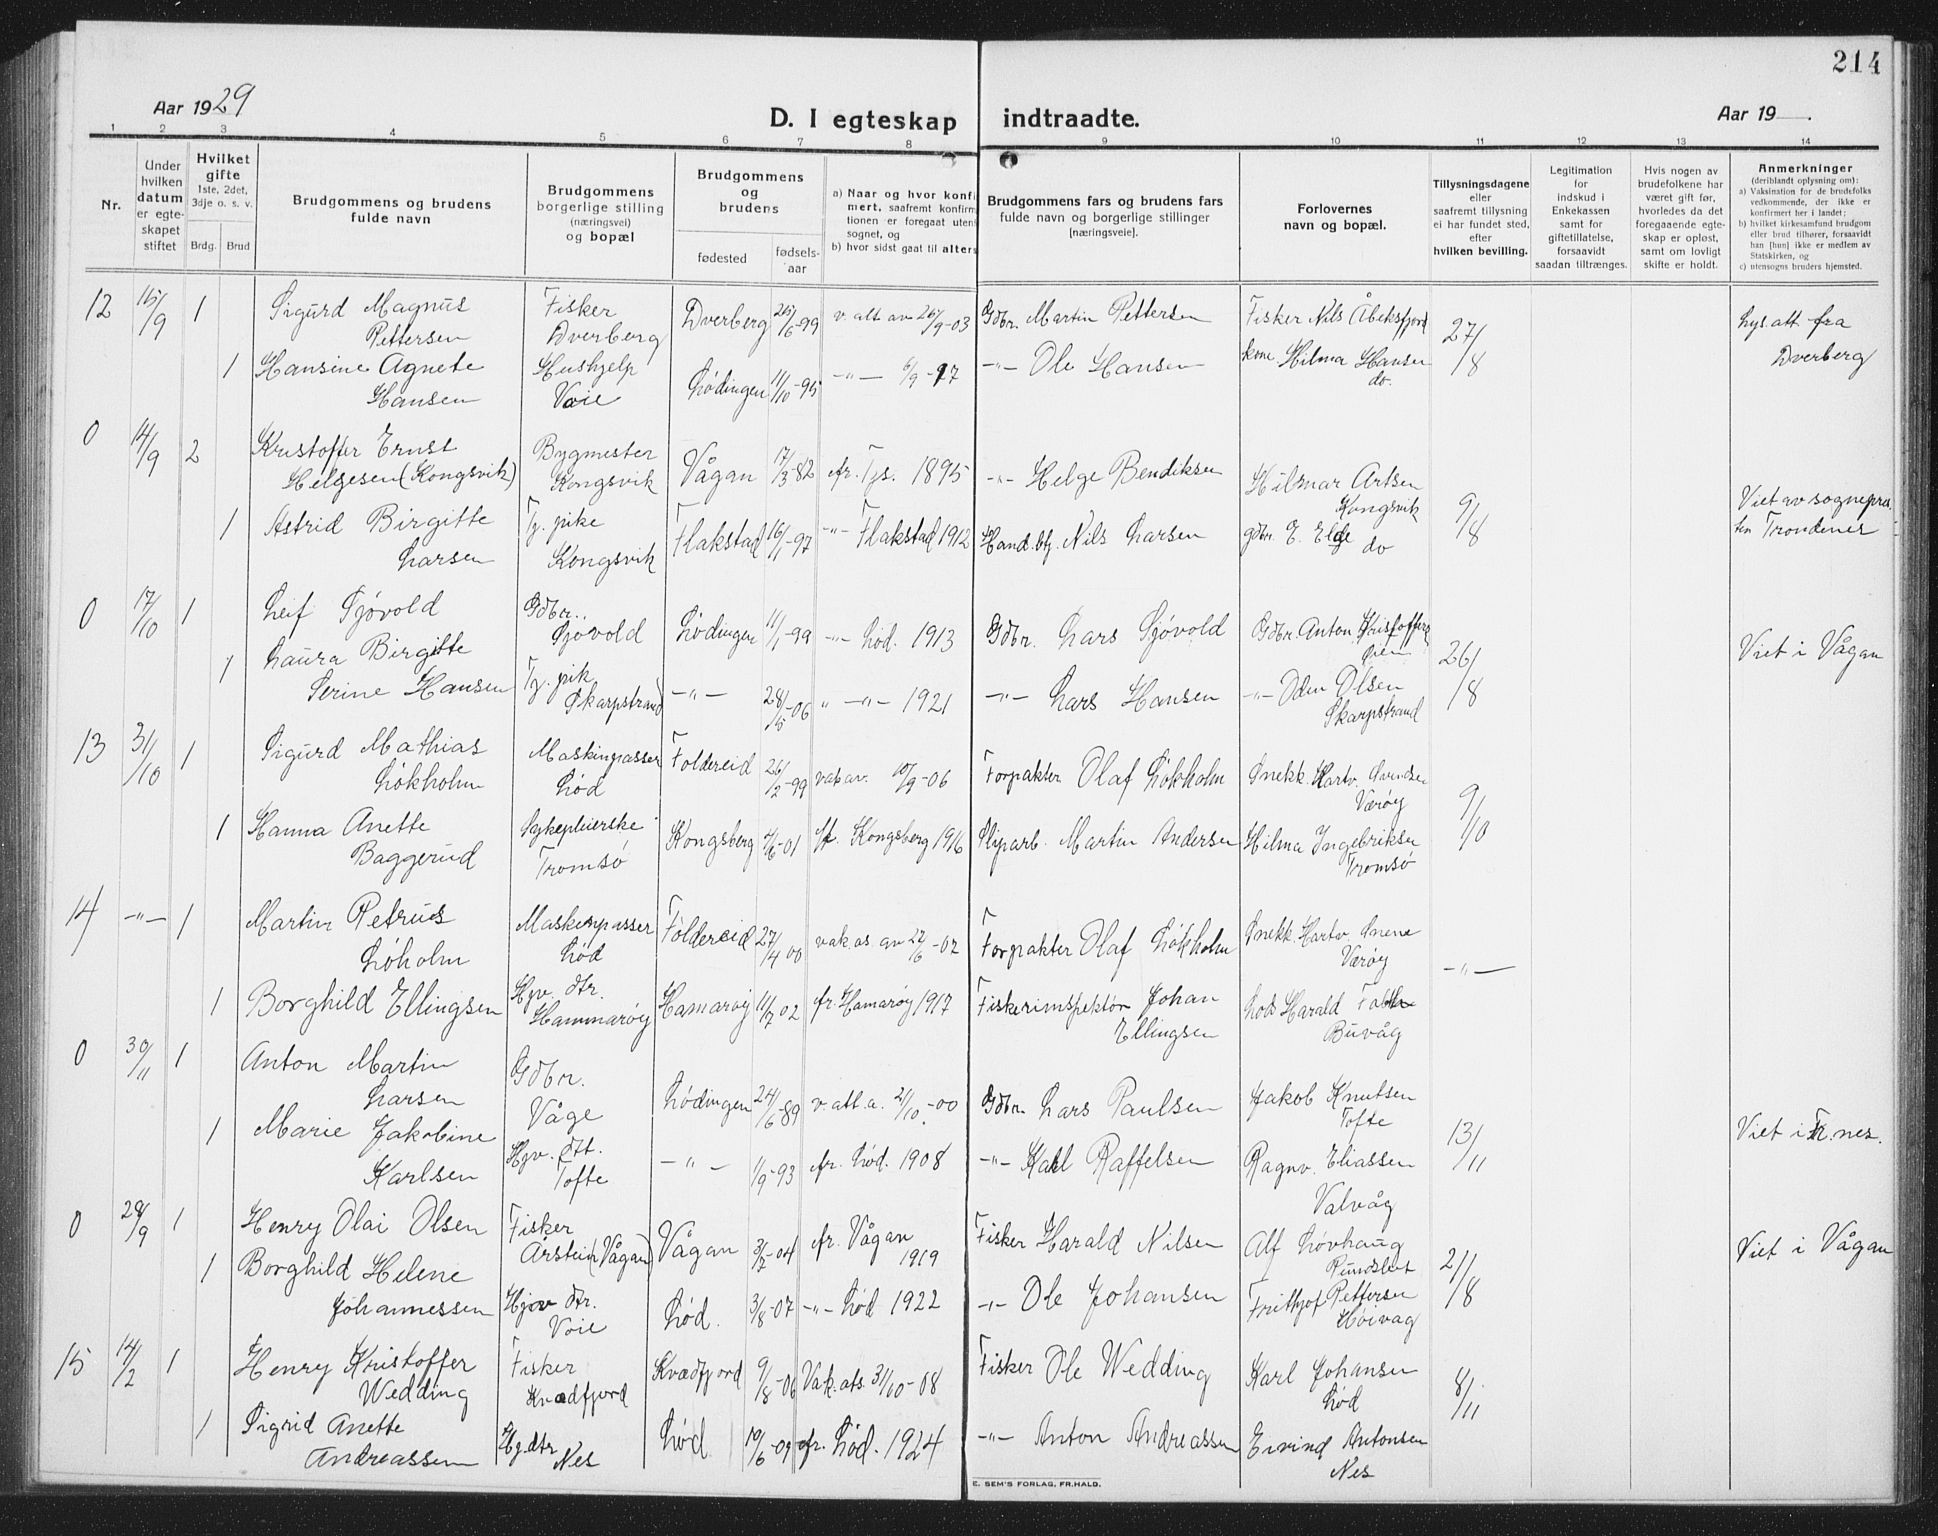 214
Aar 1929
D. I egteskap indtraadte.
Aar 19 .
1 2 3 4 5 6 7 8 9 10 11 12 13 14
Nr.
Under hvilken datum er egteskapet stiftet
Hvilket gifte 1ste, 2det, 3dje o. s. v.
Brdg. Brud
Brudgommens og brudens fulde navn
Brudgommens borgerlige stilling (næringsvei) og bopæl
Brudgommens og brudens
fødested
fødselsaar
a) Naar og hvor konfirmert, saafremt konfirmtionen er foregaat utenfor sognet, og
b) hvor sidst gaat til alters
Brudgommens fars og brudens fars fulde navn og borgerlige stillinger [næringsveie].
Forlovernes navn og bopæl.
Tillysningsdagene eller saafremt tillysning ei har fundet sted, efter hvilken bevilling.
Legitimation for indskud i Enkekassen samt for giftetillatelse, forsaavidt saadan tiltrænges.
Hvis nogen av brudefolkene har været gift før, hvorledes da det foregaaende egteskap er opløst, samt om lovligt skifte er holdt.
Anmerkninger (deriblandt oplysning om):
a) Vaksination for de brudefolks vedkommende, der ikke er konfirmert her i landet;
b) hvilket kirkesamfund brudgom eller brud tilhører, forsaavidt han [hun] ikke er medlem av Statskirken, og
c) utensogns bruders hjemsted.
12 15/9 1 Sigurd Magnus Pettersen Fisker Dverberg Dverberg 25/6-99 v. att av 26/9-03 Gdbr. Martin Pettersen Fisker Nils 27/8 lys. att fra Dverberg
1 Hansine Agnete Hansen Hushjelp Voie Lødingen 11/10-95 -"- 6/9-97 -"- Ole Hansen kone Hilma Hansen do.
0 14/9 2 Kristoffer Ernst Helgesen (Kongsvik) Bygmester Kongsvik Vågan 17/3-82 fr. Tys. 1895 -"- Helge Bendiksen Hilmar Antsen Kongsvik 9/8 Viet av sognepresten Trondenes
1 Astrid Birgitte Larsen Tj. pike Kongsvik Flakstad 16/1-97 -"- Flakstad 1912 Hand.btj. Nils Larsen gdbr. E. Elde do
0 17/10 1 Leif Sjøvold Gdbr. Sjøvold Lødingen 11/1-99 -"- Lød. 1913 Gdbr. Lars Sjøvold Gdbr. Anton 26/8 Viet i Vågan
1 Laura Birgitte Serine Hansen Tj. pik Skarpstrand -"- 28/5-06 " -"- 1921 -"- Lars Hansen -"- Oden Olsen Skarpstrand
13 31/10 1 Sigurd Mathias Løkholm Maskinpasser Lød Foldereid 26/2-99 vak av. 10/9-06 Forpakter Olaf Løkholm Snekk. Hartv. Værøy 9/10
1 Hanna Anette Baggerud Sykepleierske Tromsø Kongsberg 4/6-01 fr. Kongsberg 1916 Sliparb. Martin Andersen Hilma Ingebriksen Tromsø
14 -"- 1 Martin Petrus Løholm Maskinpasser Lød Foldereid 27/4 00 vak. as. av 22/6-02 Forpakter Olaf Løkholm Snekk. Hartv. Værøy -"-
1 Borghild Ellingsen Hjv. dtr. Hammarøy Hamarøy 11/7 02 fr. Hamarøy 1917 Fiskeriinspektør Johan Ellingsen Lods Harald Buvåg
0 30/11 1 Anton Martin Larsen Gdbr. Våge Lødingen 24/6-89 v. att. a. 21/10-00 Gdbr. Lars Paulsen Jakob Knutsen Tofte 13/11 Viet i
1 Marie Jakobine Karlsen Hjv. dtt. Tofte -"- 1/9-93 fr. Lød. 1908 -"- Karl Raffelsen Ragnv. Eliassen Valvåg
0 28/9 1 Henry Olai Olsen Fisker Årstein (Vågan) Vågan 3/7-04 fr. Vågan 1919 Fisker Harald Nilsen Alf Løvhaug 21/8 Viet i Vågan
1 Borghild Helene Johannessen Hjv dtr. Voie Lød. 3/8-07 -"- Lød 1922 -"- Ole Johansen Frithjof Pettersen Høivag
15 14/2 1 Henry Kristoffer Wedding Fisker Kvædfjord Kvædfjord 9/8-06 Vak. ats. 31/10-08 Fisker Ole Wedding Karl Johansen Lød 8/11
1 Sigrid Anette Andreassen Hj. dtr Nes Lød 10/6-09 fr. Lød. 1924 -"- Anton Andreassen Eivind Antonsen Nes
E. SEM'S FORLAG, FR.HALD.